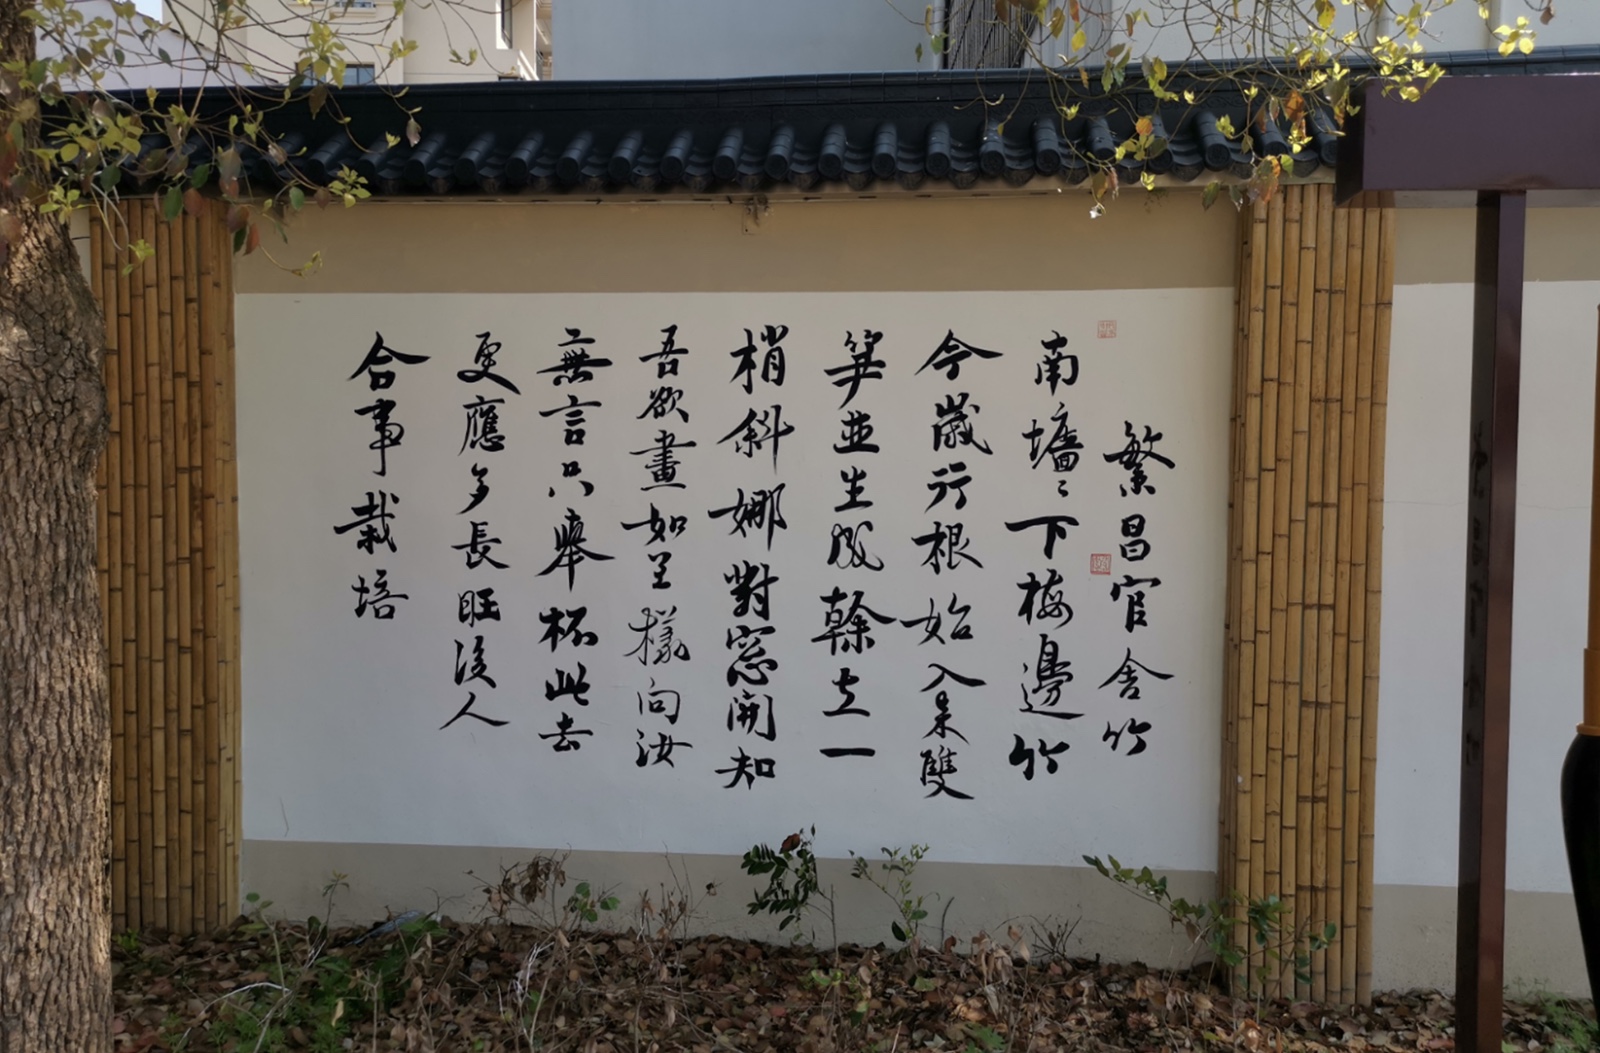 繁昌官舍竹
南墻〻下梅邊竹
今歲行根始入來雙
笋並生成幹立一
梢斜娜對窓開知
吾欲畫如呈樣向汝
無言只舉杯此去
更應多長旺後人
合事栽培